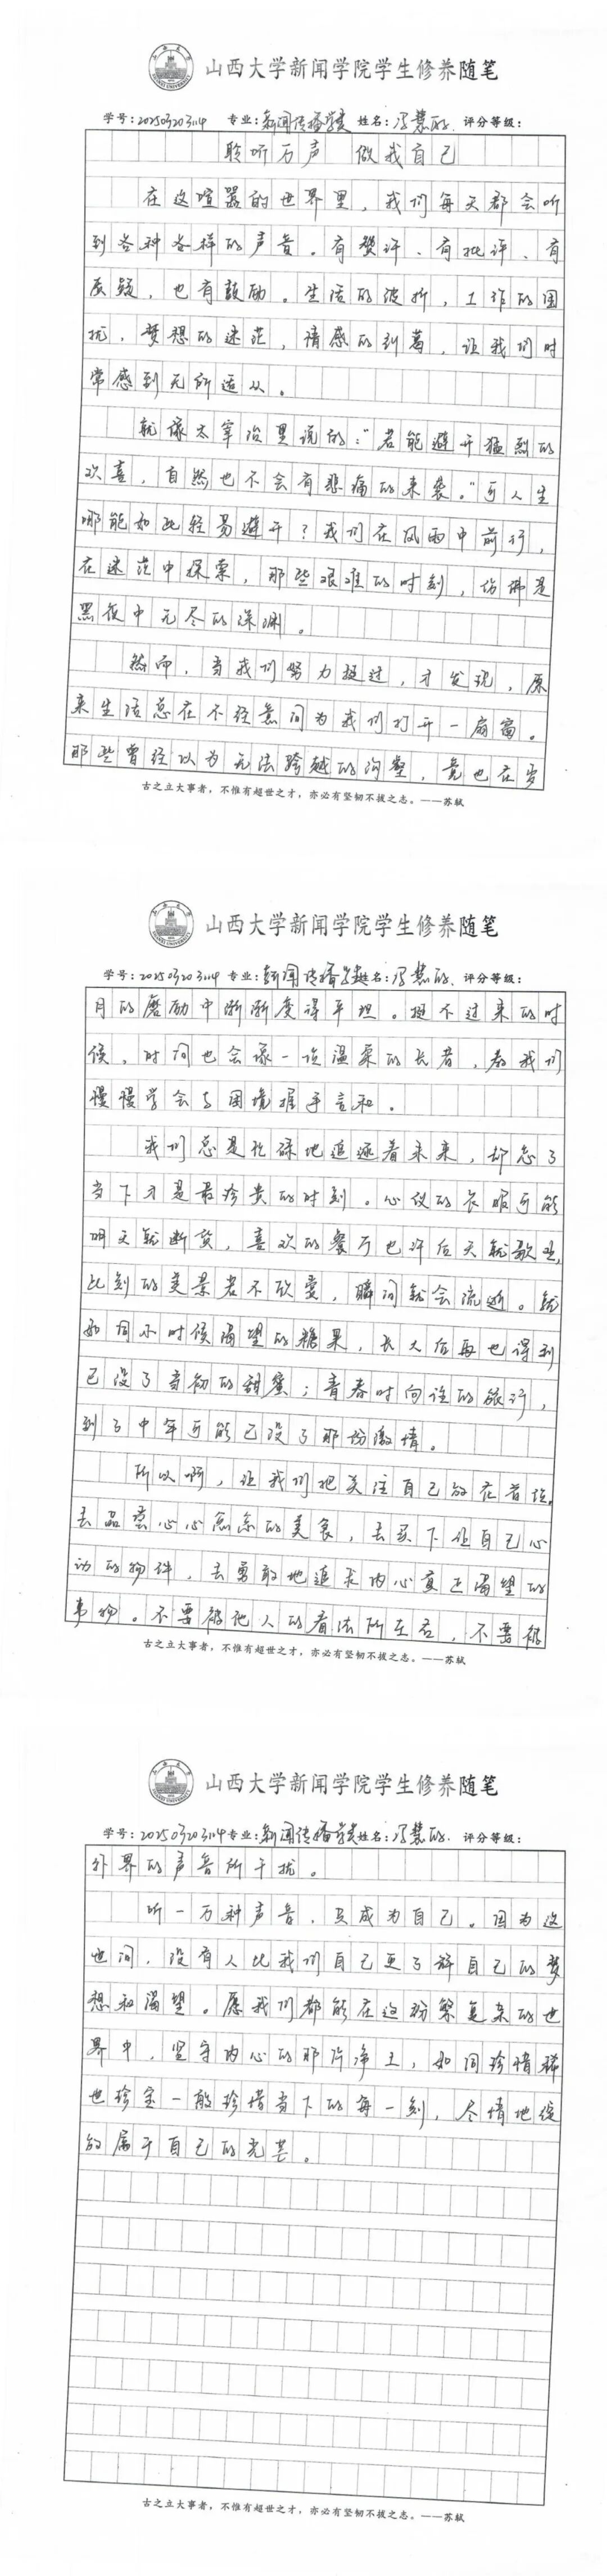 山西大学新闻学院学生修养随笔
学号：202503203114 专业：新闻传播学类 姓名：冯慧 评分等级：
聆听万声 做我自己
在这喧嚣的世界里，我们每天都会听
到各种各样的声音。有赞许、有批评、有
质疑，也有鼓励。生活的波折，工作的困
扰，梦想的迷茫，情感的纠葛，让我们时
常感到无所适从。
就像太宰治里说的：“若能避开猛烈的
欢喜，自然也不会有悲痛的来袭。”可人生
哪能如此轻易避开？我们在风雨中前行，
在迷茫中探索，那些艰难的时刻，仿佛是
黑夜中无尽的深渊。
然而，当我们努力挺过，才发现，原
来生活总在不经意间为我们打开一扇窗。
那些曾经以为无法跨越的沟壑，竟也在岁
古之立大事者，不惟有超世之才，亦必有坚韧不拔之志。——苏轼
山西大学新闻学院学生修养随笔
学号：202503203114 专业：新闻传播学类 姓名：冯慧 评分等级：
月的磨励中渐渐变得平坦。挺不过来的时
候，时间也会像一位温柔的长者，教我们
慢慢学会与困境握手言和。
我们总是忙碌地追逐着未来，却忘了
当下才是最珍贵的时刻。心仪的衣服可能
明天就断货，喜欢的餐厅也许后天就歇业，
此刻的美景若不欣赏，瞬间就会流逝。就
如同小时候渴望的糖果，长大后再也得到
已没了当初的甜蜜；青春时向往的旅行，
到了中年可能已没了那份激情。
所以啊，让我们把关注自己放在首位。
去品尝心心念念的美食，去买下让自己心
动的物件，去勇敢地追求内心真正渴望的
事物。不要被他人的看法所左右，不要被
古之立大事者，不惟有超世之才，亦必有坚韧不拔之志。——苏轼
山西大学新闻学院学生修养随笔
学号：202503203114 专业：新闻传播学类 姓名：冯慧 评分等级：
外界的声音所干扰。
听一万种声音，只成为自己。因为这
世间，没有人比我们自己更了解自己的梦
想和渴望。愿我们都能在这纷繁复杂的世
界中，坚守内心的那片净土，如同珍惜稀
世珍宝一般珍惜当下的每一刻，尽情地绽
放属于自己的光芒。
古之立大事者，不惟有超世之才，亦必有坚韧不拔之志。——苏轼